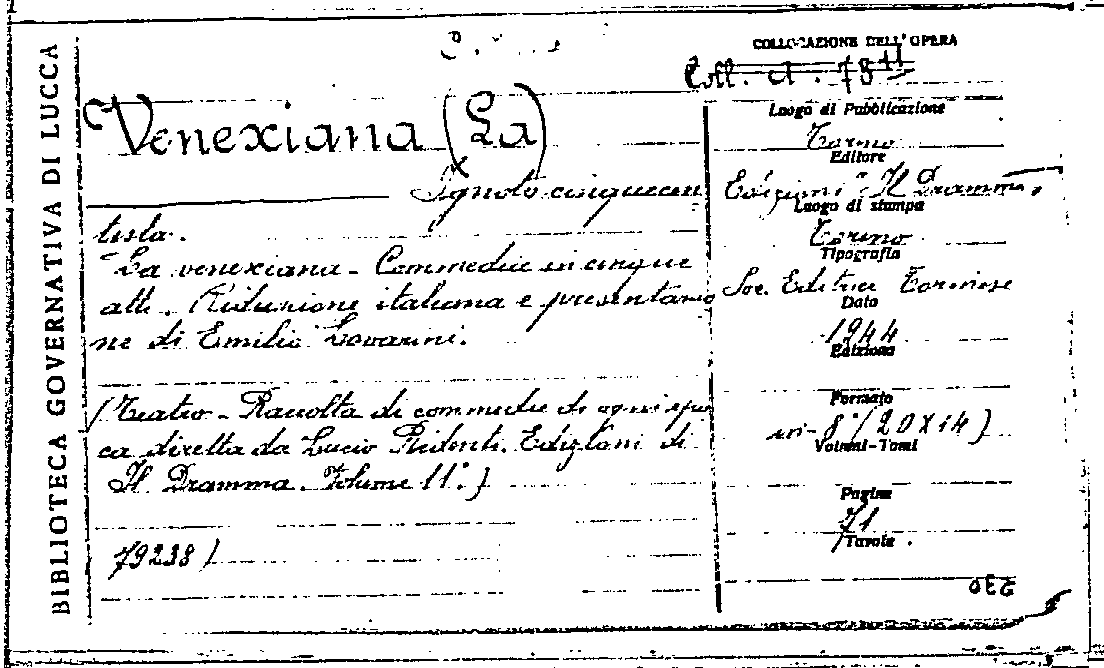 BIBLIOTECA GOVERNATIVA DI LUCCA
COLLOCAZIONE DELL'OPERA
Coll. d. 78 11
Venexiana (La)
Ignoto cinquecen
tista.
"La venexiana - Commedia in cinque
atti. Riduzione italiana e presentazio
ne di Emilio Lovarini.
(Teatro - Raccolta di commedie di ogni epo
ca diretta da Lucio Ridenti. Edizioni di
Il Dramma. Volume 11°)
79238)
Luogo di Pubblicazione
Torino
Editore
Edizioni "Il Dramma"
Luogo di stampa
Torino
Tipografia
Soc. Editrice Torinese
Data
1944
Edizione
Formato
in-8°(20x14)
Volumi-Tomi
Pagine
71
Tavole
230